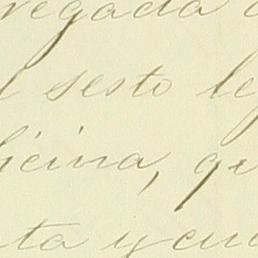 regada
sesto le
icina, qu
ta y cu